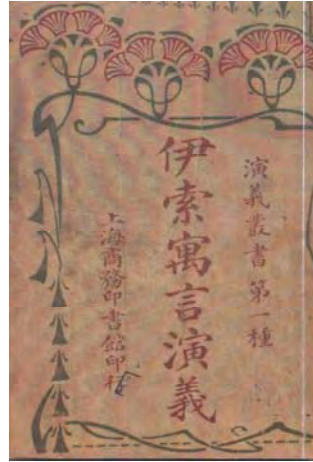 演義叢書第一種
伊索寓言演義
上海商務印書館印行